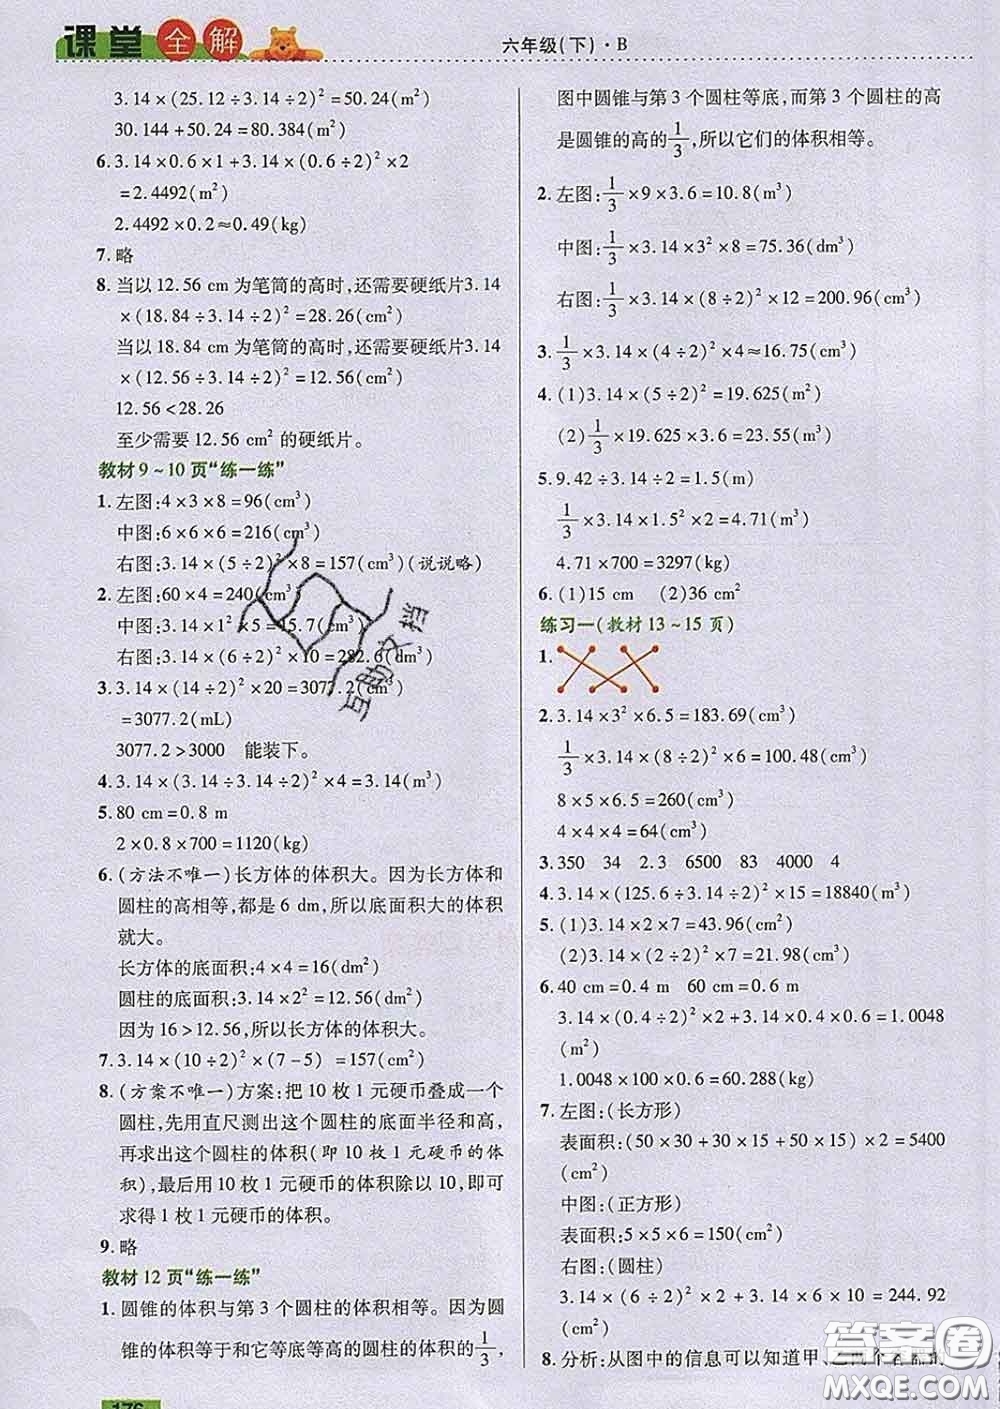 课堂全解
六年级(下)·B
3.14×(25.12÷3.14÷2)²=50.24(m²)
30.144+50.24=80.384(m²)
6.3.14×0.6×1+3.14×(0.6÷2)²×2
=2.4492(m²)
2.4492×0.2≈0.49(kg)
7.略
8.当以12.56 cm为笔筒的高时,还需要硬纸片3.14
×(18.84÷3.14÷2)²=28.26(cm²)
当以18.84 cm为笔筒的高时,还需要硬纸片3.14
×(12.56÷3.14÷2)²=12.56(cm²)
12.56<28.26
至少需要12.56 cm²的硬纸片。
教材9~10页“练一练”
1.左图:4×3×8=96(cm³)
中图:6×6×6=216(cm³)
右图:3.14×(5÷2)²×8=157(cm³)(说说略)
2.左图:60×4=240(cm³)
中图:3.14×1²×5=15.7(cm³)
右图:3.14×(6÷2)²×10=282.6(dm³)
3.3.14×(14÷2)²×20=3077.2(cm³)
=3077.2(mL)
3077.2>3000 能装下。
4.3.14×(3.14÷3.14÷2)²×4=3.14(m³)
5.80 cm=0.8 m
2×0.8×700=1120(kg)
6.(方法不唯一)长方体的体积大。因为长方体和
圆柱的高相等,都是6 dm,所以底面积大的体积
就大。
长方体的底面积:4×4=16(dm²)
圆柱的底面积:3.14×2²=12.56(dm²)
因为16>12.56,所以长方体的体积大。
7.3.14×(10÷2)²×(7-5) =157(cm²)
8.(方案不唯一)方案:把10枚1元硬币叠成一个
圆柱,先用直尺测出这个圆柱的底面半径和高,
再求出这个圆柱的体积(即10枚1元硬币的体
积),最后用10枚1元硬币的体积除以10,即可
求得1枚1元硬币的体积。
9.略
教材12页“练一练”
1.圆锥的体积与第3个圆柱的体积相等。因为圆
锥的体积等于和它等底等高的圆柱的体积的1/3,
176
图中圆锥与第3个圆柱等底,而第3个圆柱的高
是圆锥的高的1/3,所以它们的体积相等。
2.左图:1/3×9×3.6=10.8(m³)
中图:1/3×3.14×3²×8=75.36(dm³)
右图:1/3×3.14×(8÷2)²×12=200.96(cm³)
3.1/3×3.14×(4÷2)²×4≈16.75(cm³)
4.(1)3.14×(5÷2)²=19.625(m²)
(2)1/3×19.625×3.6=23.55(m³)
5.9.42÷3.14÷2=1.5(m)
1/3×3.14×1.5²×2=4.71(m³)
4.71×700=3297(kg)
6.(1)15 cm (2)36 cm²
练习一(教材13~15页)
1.
2.3.14×3²×6.5=183.69(cm³)
1/3×3.14×(8÷2)²×6=100.48(cm³)
8×5×6.5=260(cm³)
4×4×4=64(cm³)
3.350 34 2.3 6500 83 4000 4
4.3.14×(125.6÷3.14÷2)²×15=18840(m³)
5.(1)3.14×2×7=43.96(cm²)
(2)3.14×(2÷2)²×7=21.98(cm³)
6.40 cm=0.4 m 60 cm=0.6 m
3.14×(0.4÷2)²×2+3.14×0.4×0.6=1.0048
(m²)
1.0048×100×0.6=60.288(kg)
7.左图:(长方形)
表面积:(50×30+30×15+50×15)×2=5400
(cm²)
中图:(正方形)
表面积:5×5×6=150(cm²)
右图:(圆柱)
3.14×(6÷2)²×2+3.14×6×10=244.92
(cm²)
8.分析:从图中的信息可以知道甲、
互助文档
答案圈
MXQE.COM